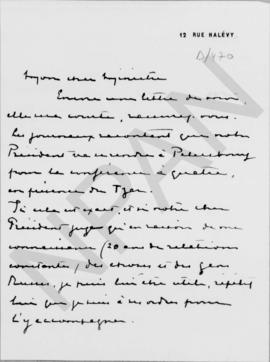 12 RUE HALÉVY
D/470
Mon cher Ministre
Encore une lettre de moi,
elle me coûte, recevez-vous.
Les journaux racontent que notre
Président va se rendre à Pétersbourg
pour la conférence à quatre,
en présence du Tzar.
Si cela est exact, et si notre cher
Président juge qu'en raison de ma
connaissance (20 ans de relations
constantes, des choses et des gens
Russes, je puis lui être utile,
que je suis à ses ordres pour
l'y accompagner.
NPAN